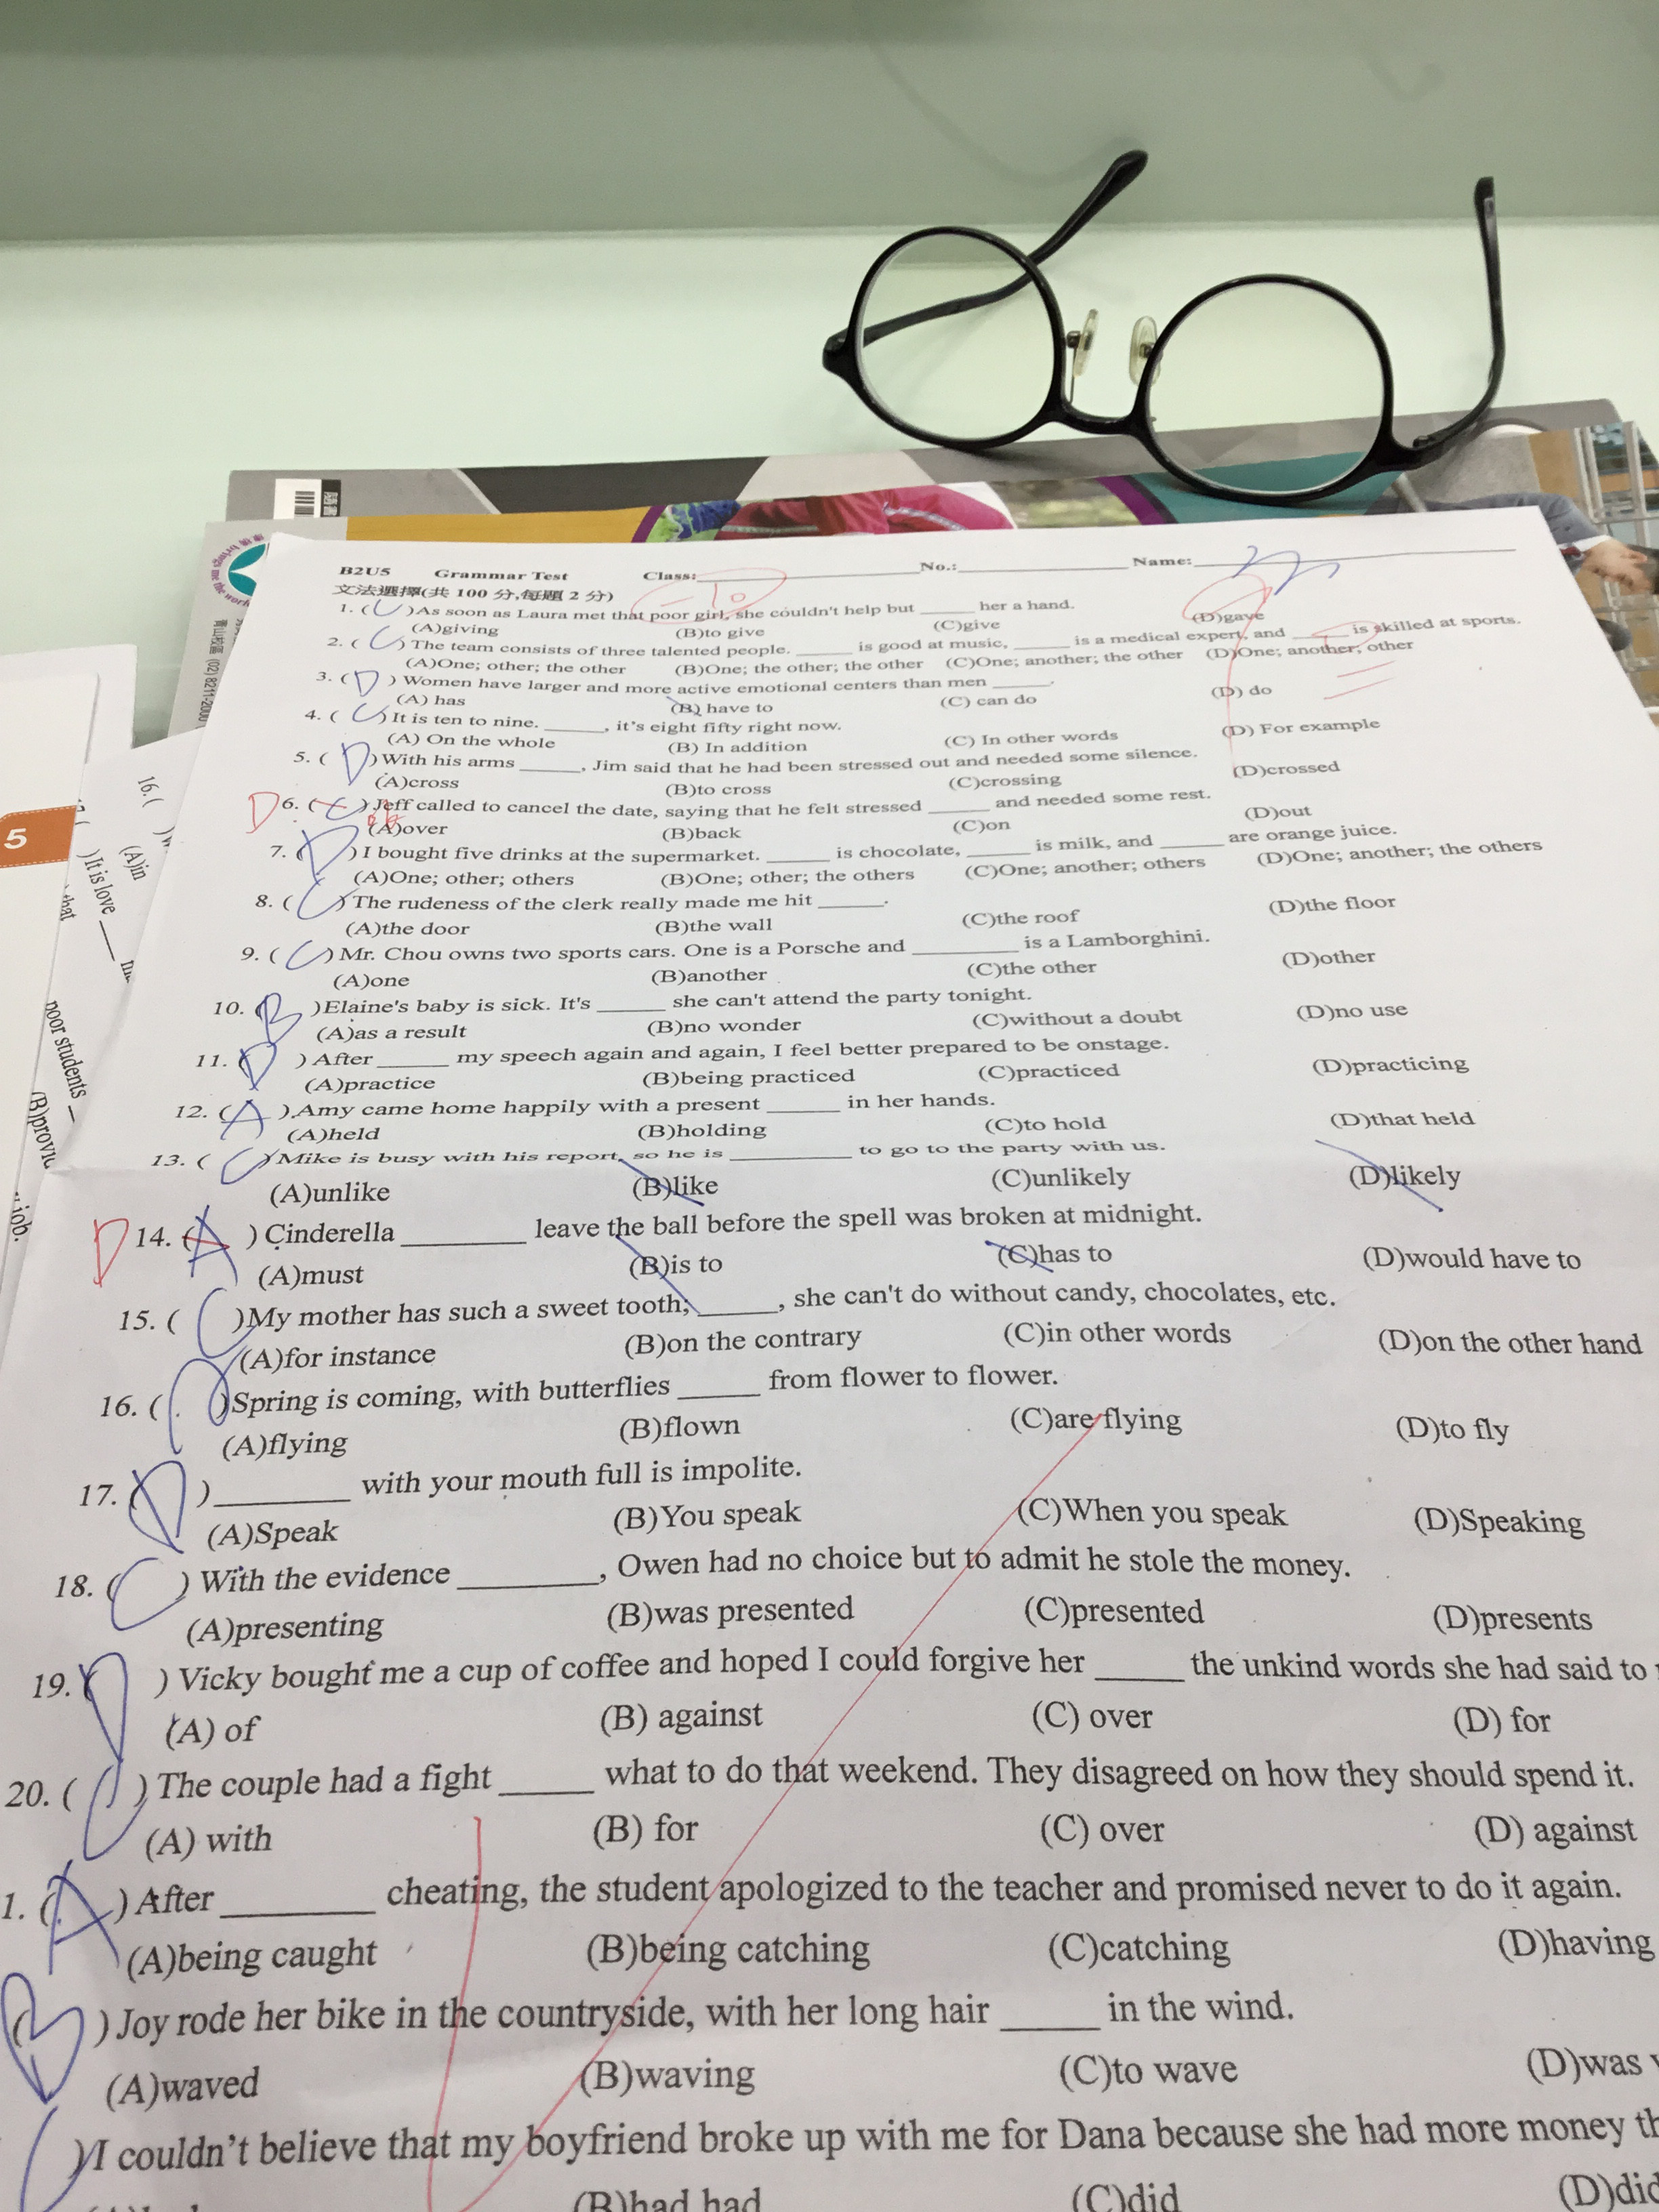 B2U5 Grammar Test Class: No.: Name:
文法選擇(共 100 分,每題 2 分) -10
1. (C)As soon as Laura met that poor girl, she couldn't help but _____ her a hand.
(A)giving (B)to give (C)give (D)gave
2. (C) The team consists of three talented people. _____ is good at music, _____ is a medical expert, and _____ is skilled at sports.
(A)One; other; the other (B)One; the other; the other (C)One; another; the other (D)One; another; other
3. (D) Women have larger and more active emotional centers than men _____.
(A) has (B) have to (C) can do (D) do
4. (C)It is ten to nine. _____, it's eight fifty right now.
(A) On the whole (B) In addition (C) In other words (D) For example
5. (D)With his arms _____, Jim said that he had been stressed out and needed some silence.
(A)cross (B)to cross (C)crossing (D)crossed
D 6. (C)Jeff called to cancel the date, saying that he felt stressed _____ and needed some rest.
(A)over (B)back (C)on (D)out
7. (D)I bought five drinks at the supermarket. _____ is chocolate, _____ is milk, and _____ are orange juice.
(A)One; other; others (B)One; other; the others (C)One; another; others (D)One; another; the others
8. (C)The rudeness of the clerk really made me hit _____.
(A)the door (B)the wall (C)the roof (D)the floor
9. (C)Mr. Chou owns two sports cars. One is a Porsche and _____ is a Lamborghini.
(A)one (B)another (C)the other (D)other
10. (B)Elaine's baby is sick. It's _____ she can't attend the party tonight.
(A)as a result (B)no wonder (C)without a doubt (D)no use
11. (D) After _____ my speech again and again, I feel better prepared to be onstage.
(A)practice (B)being practiced (C)practiced (D)practicing
12. (A)Amy came home happily with a present _____ in her hands.
(A)held (B)holding (C)to hold (D)that held
13. (C)Mike is busy with his report, so he is _____ to go to the party with us.
(A)unlike (B)like (C)unlikely (D)likely
D 14. (A) Cinderella _____ leave the ball before the spell was broken at midnight.
(A)must (B)is to (C)has to (D)would have to
15. (C)My mother has such a sweet tooth; _____, she can't do without candy, chocolates, etc.
(A)for instance (B)on the contrary (C)in other words (D)on the other hand
16. ( )Spring is coming, with butterflies _____ from flower to flower.
(A)flying (B)flown (C)are flying (D)to fly
17. (D)_____ with your mouth full is impolite.
(A)Speak (B)You speak (C)When you speak (D)Speaking
18. (C) With the evidence _____, Owen had no choice but to admit he stole the money.
(A)presenting (B)was presented (C)presented (D)presents
19. (D) Vicky bought me a cup of coffee and hoped I could forgive her _____ the unkind words she had said to
(A) of (B) against (C) over (D) for
20. (C) The couple had a fight _____ what to do that weekend. They disagreed on how they should spend it.
(A) with (B) for (C) over (D) against
1. (A) After _____ cheating, the student apologized to the teacher and promised never to do it again.
(A)being caught (B)being catching (C)catching (D)having
(B) Joy rode her bike in the countryside, with her long hair _____ in the wind.
(A)waved (B)waving (C)to wave (D)was
)I couldn't believe that my boyfriend broke up with me for Dana because she had more money
(B)had had (C)did (D)did
5
16.(
(A)in
)It is love
that
poor students
job.
(02) 8211-2000